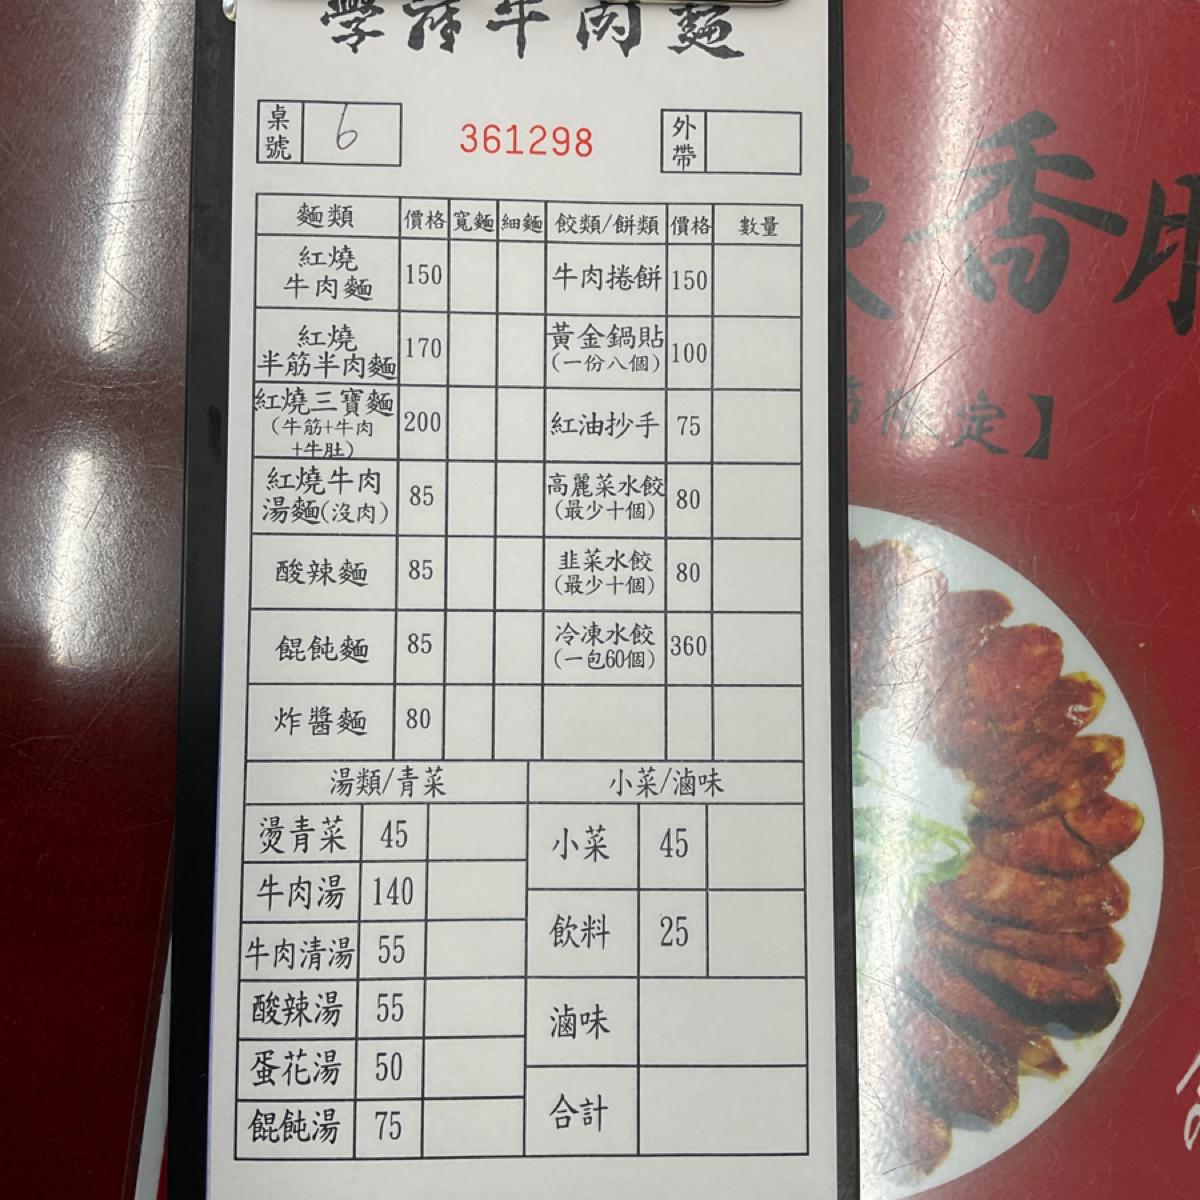 牛肉麵
桌號 6
361298
外帶
麵類 價格 寬麵 細麵 餃類/餅類 價格 數量
紅燒
牛肉麵 150
牛肉捲餅 150
紅燒
半筋半肉麵 170
黃金鍋貼
(一份八個) 100
紅燒三寶麵
(牛筋+牛肉
+牛肚) 200
紅油抄手 75
紅燒牛肉
湯麵(沒肉) 85
高麗菜水餃
(最少十個) 80
酸辣麵 85
韭菜水餃
(最少十個) 80
餛飩麵 85
冷凍水餃
(一包60個) 360
炸醬麵 80
湯類/青菜
燙青菜 45
牛肉湯 140
牛肉清湯 55
酸辣湯 55
蛋花湯 50
餛飩湯 75
小菜/滷味
小菜 45
飲料 25
滷味
合計
香
限定】